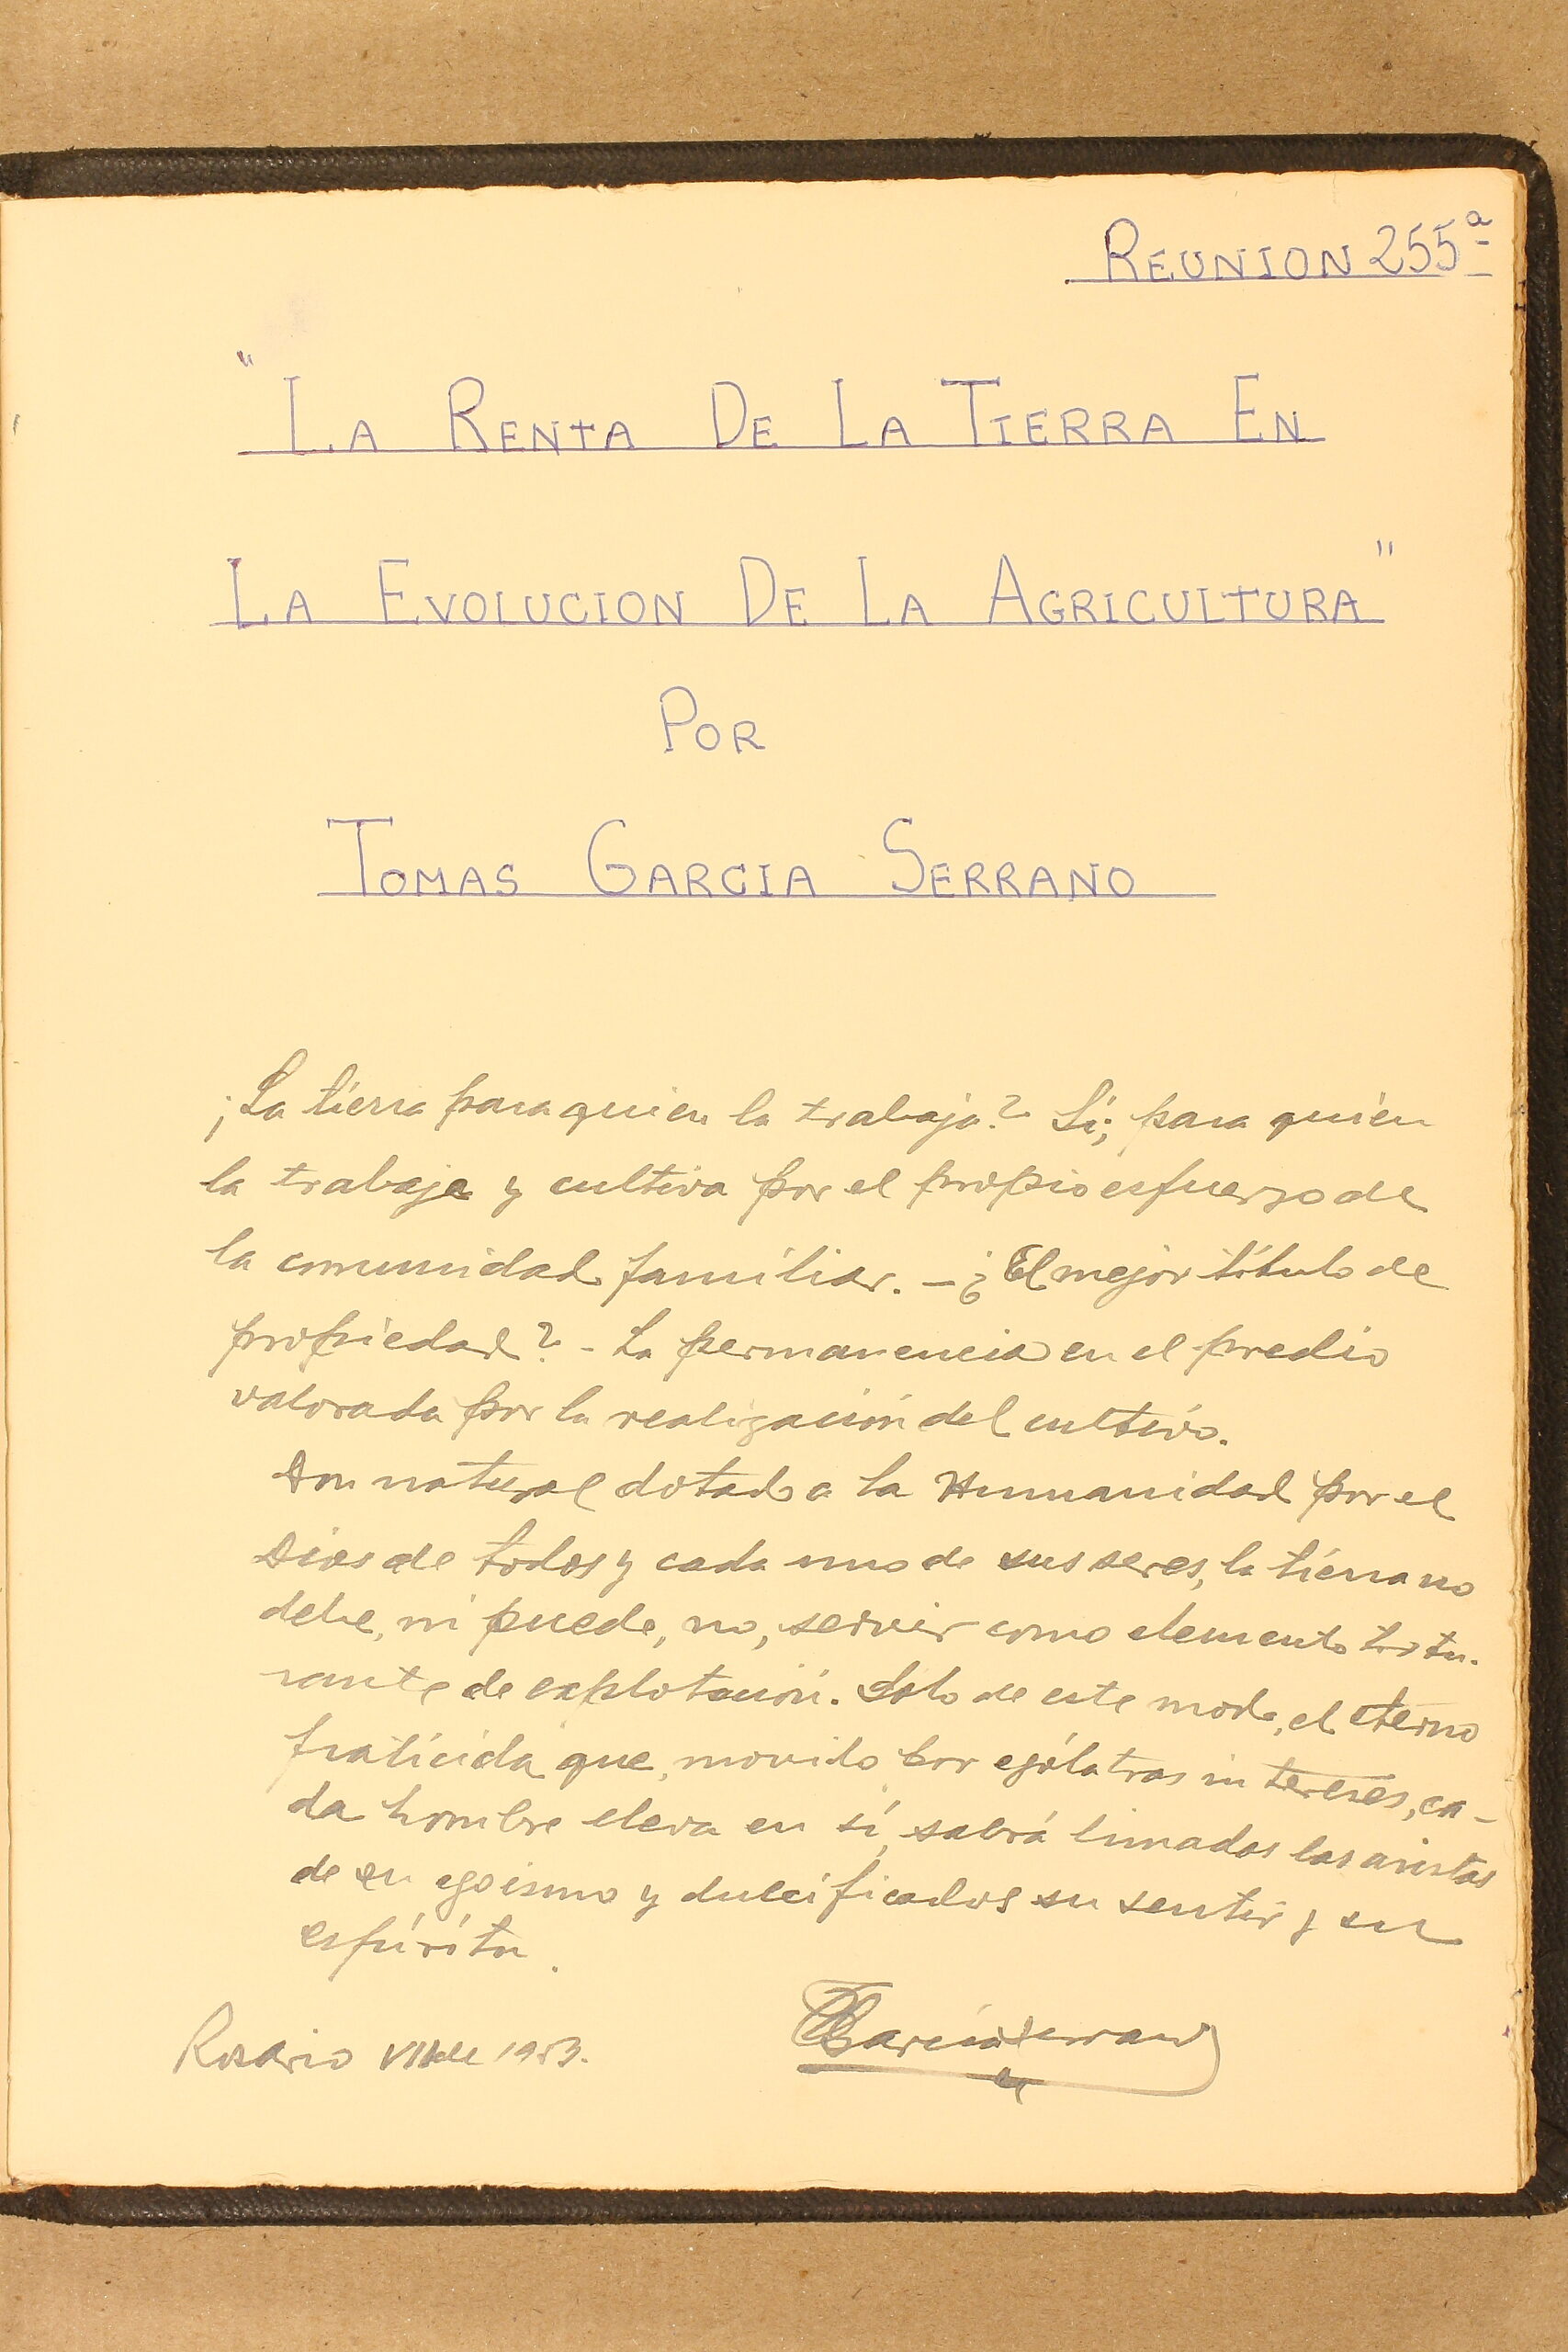 REUNION 255ª
"LA RENTA DE LA TIERRA EN
LA EVOLUCION DE LA AGRICULTURA"
POR
TOMAS GARCIA SERRANO
¡La tierra para quien la trabaja? Sí; para quien
la trabaja y cultiva por el propio esfuerzo de
la comunidad familiar. - ¿El mejor título de
propiedad? - La permanencia en el predio
valorada por la realización del cultivo.
Don natural dotado a la Humanidad por el
Dios de todos y cada uno de sus seres, la tierra no
debe, ni puede, no, servir como elemento tritu-
rante de explotación. Solo de este modo, el eterno
fraticida que, movido por ególatras interés, ca-
da hombre eleva en sí, sabrá limadas las aristas
de su egoismo y dulcificados su sentir y su
espíritu.
Rosario de 1953.
TGarcíaSerrano